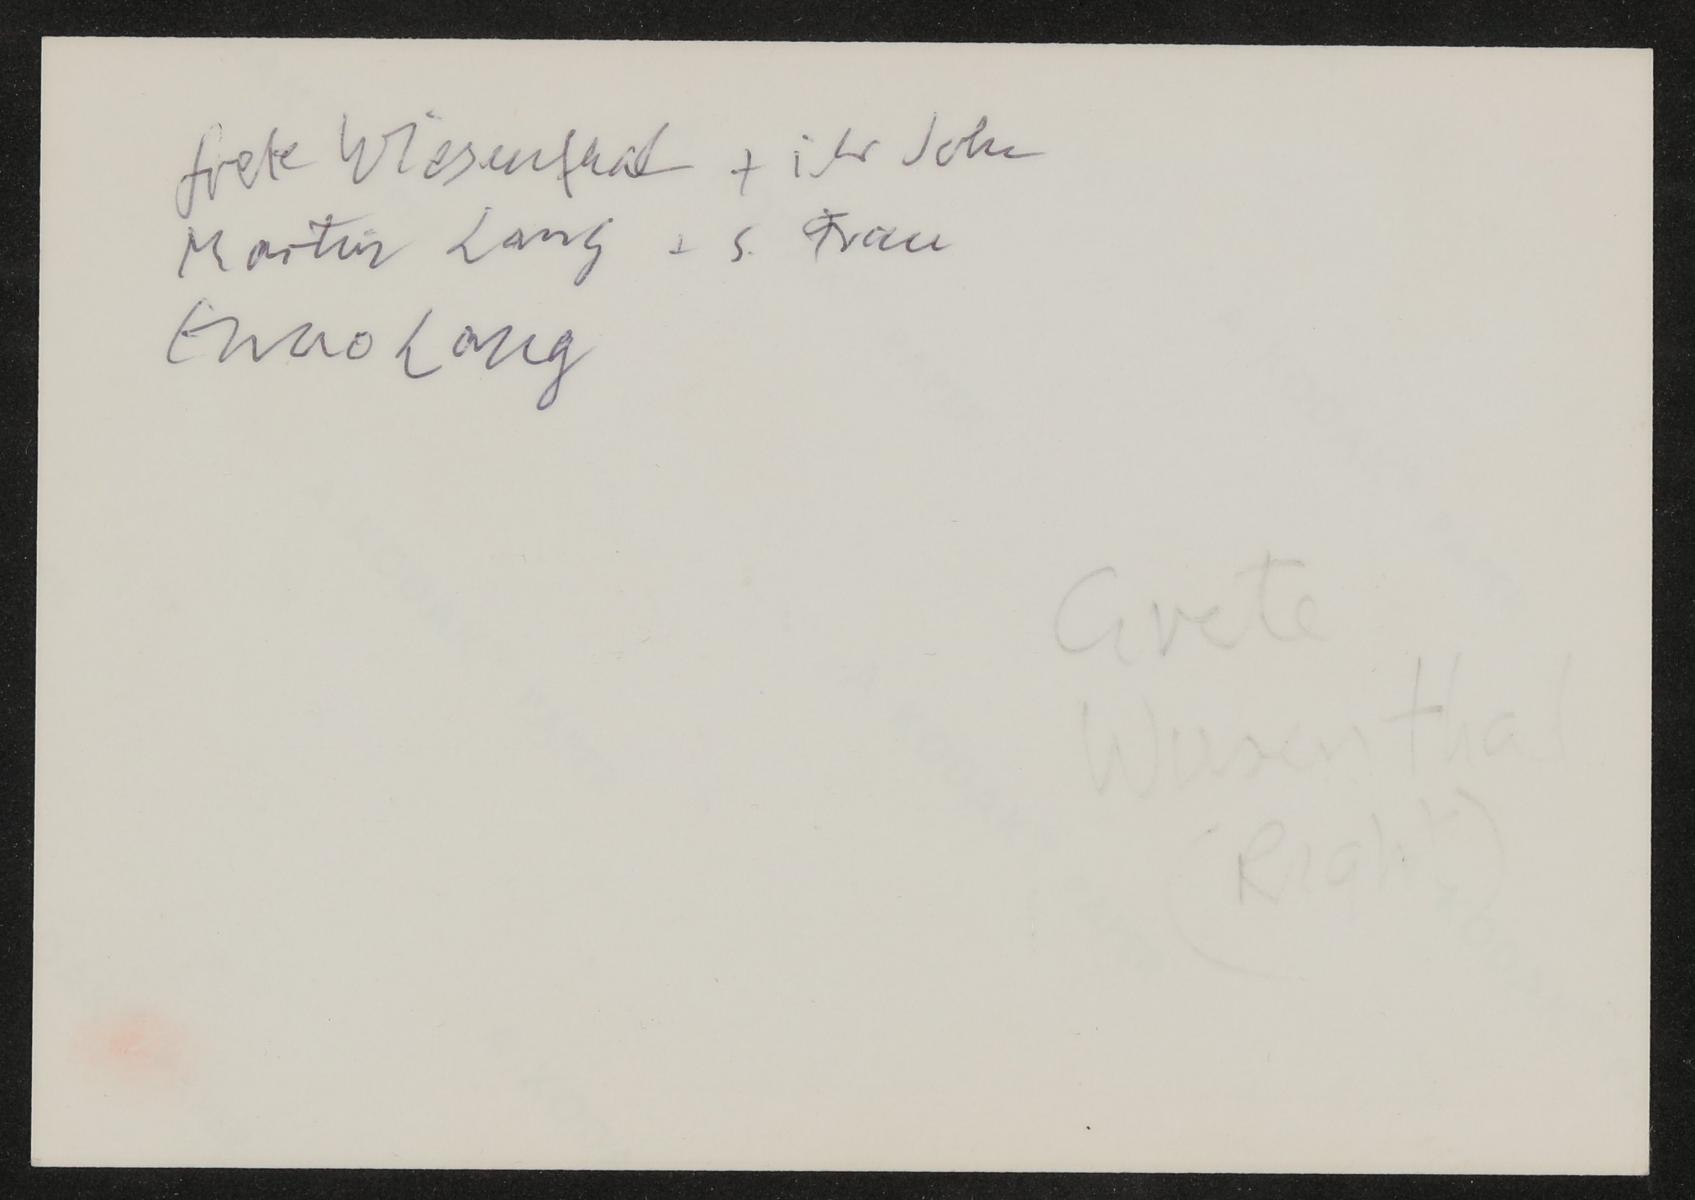 Grete Wiesenthal + ihr Sohn
Martin Lang + s. Frau
Lang
Grete
Wiesenthal
(Right)